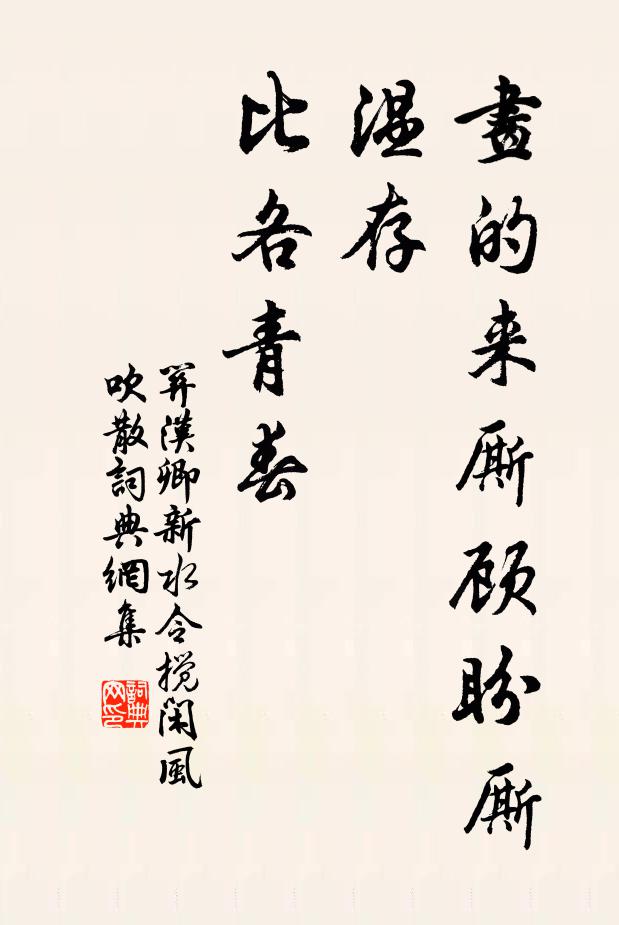 畫的来厮顾盼厮
温存
比各青春
関漢卿新水令搅闲風
吹散詞典網集
詞典
网印